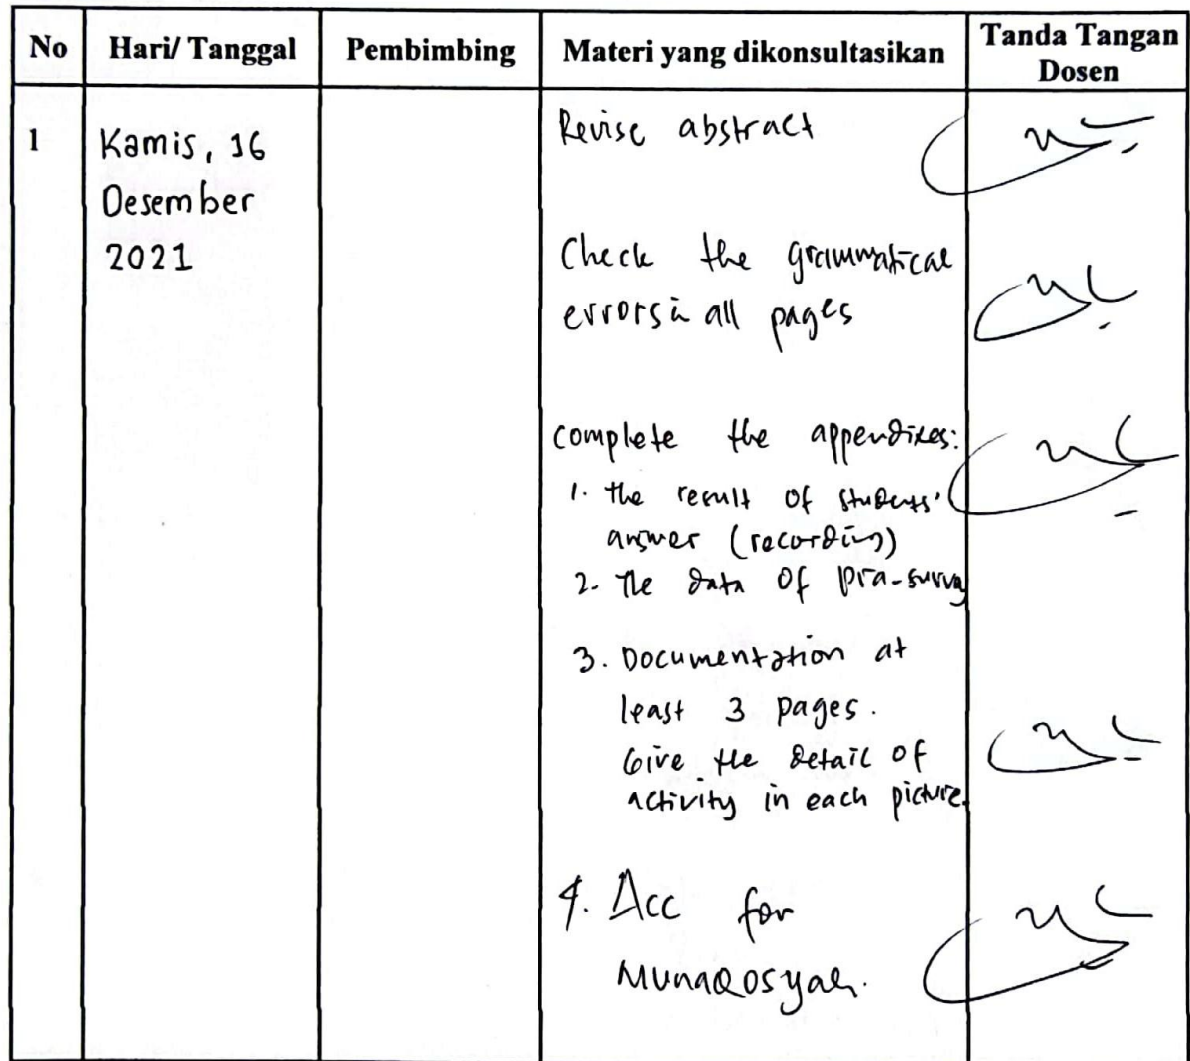 No Hari/ Tanggal Pembimbing Materi yang dikonsultasikan Tanda Tangan
Dosen
1 Kamis, 16
Desember
2021
Revise abstract
Check the grammatical
errors in all pages
complete the appendixes:
1. the result of students'
answer (recording)
2. The data of pra-survey
3. Documentation at
least 3 pages.
Give the detail of
activity in each picture.
4. Acc for
Munaqosyah.